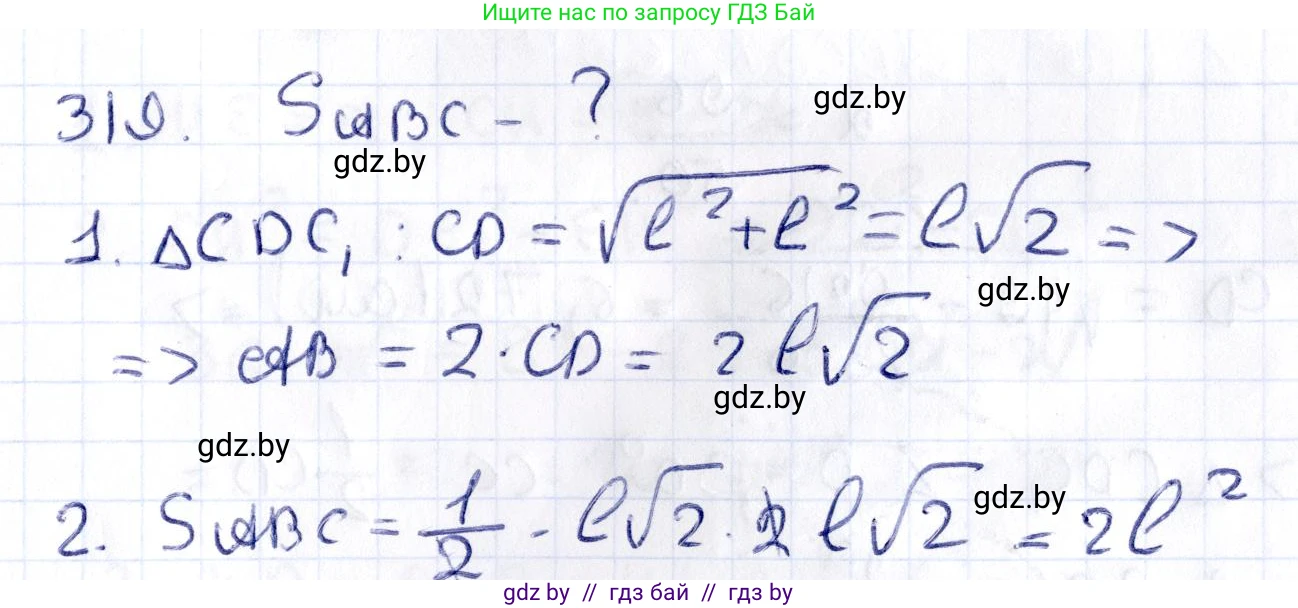 Ищите нас по запросу ГДЗ Бай
319. SᴜABC - ?
gdz.by
gdz.by
1. ΔCDC₁ : CD = √(l² + l²) = l√2 =>
gdz.by
=> AB = 2 · CD = 2l√2
gdz.by
gdz.by
2. SᴜABC = 1/2 · l√2 · 2l√2 = 2l²
gdz.by
gdz by // гдз бай // гдз by